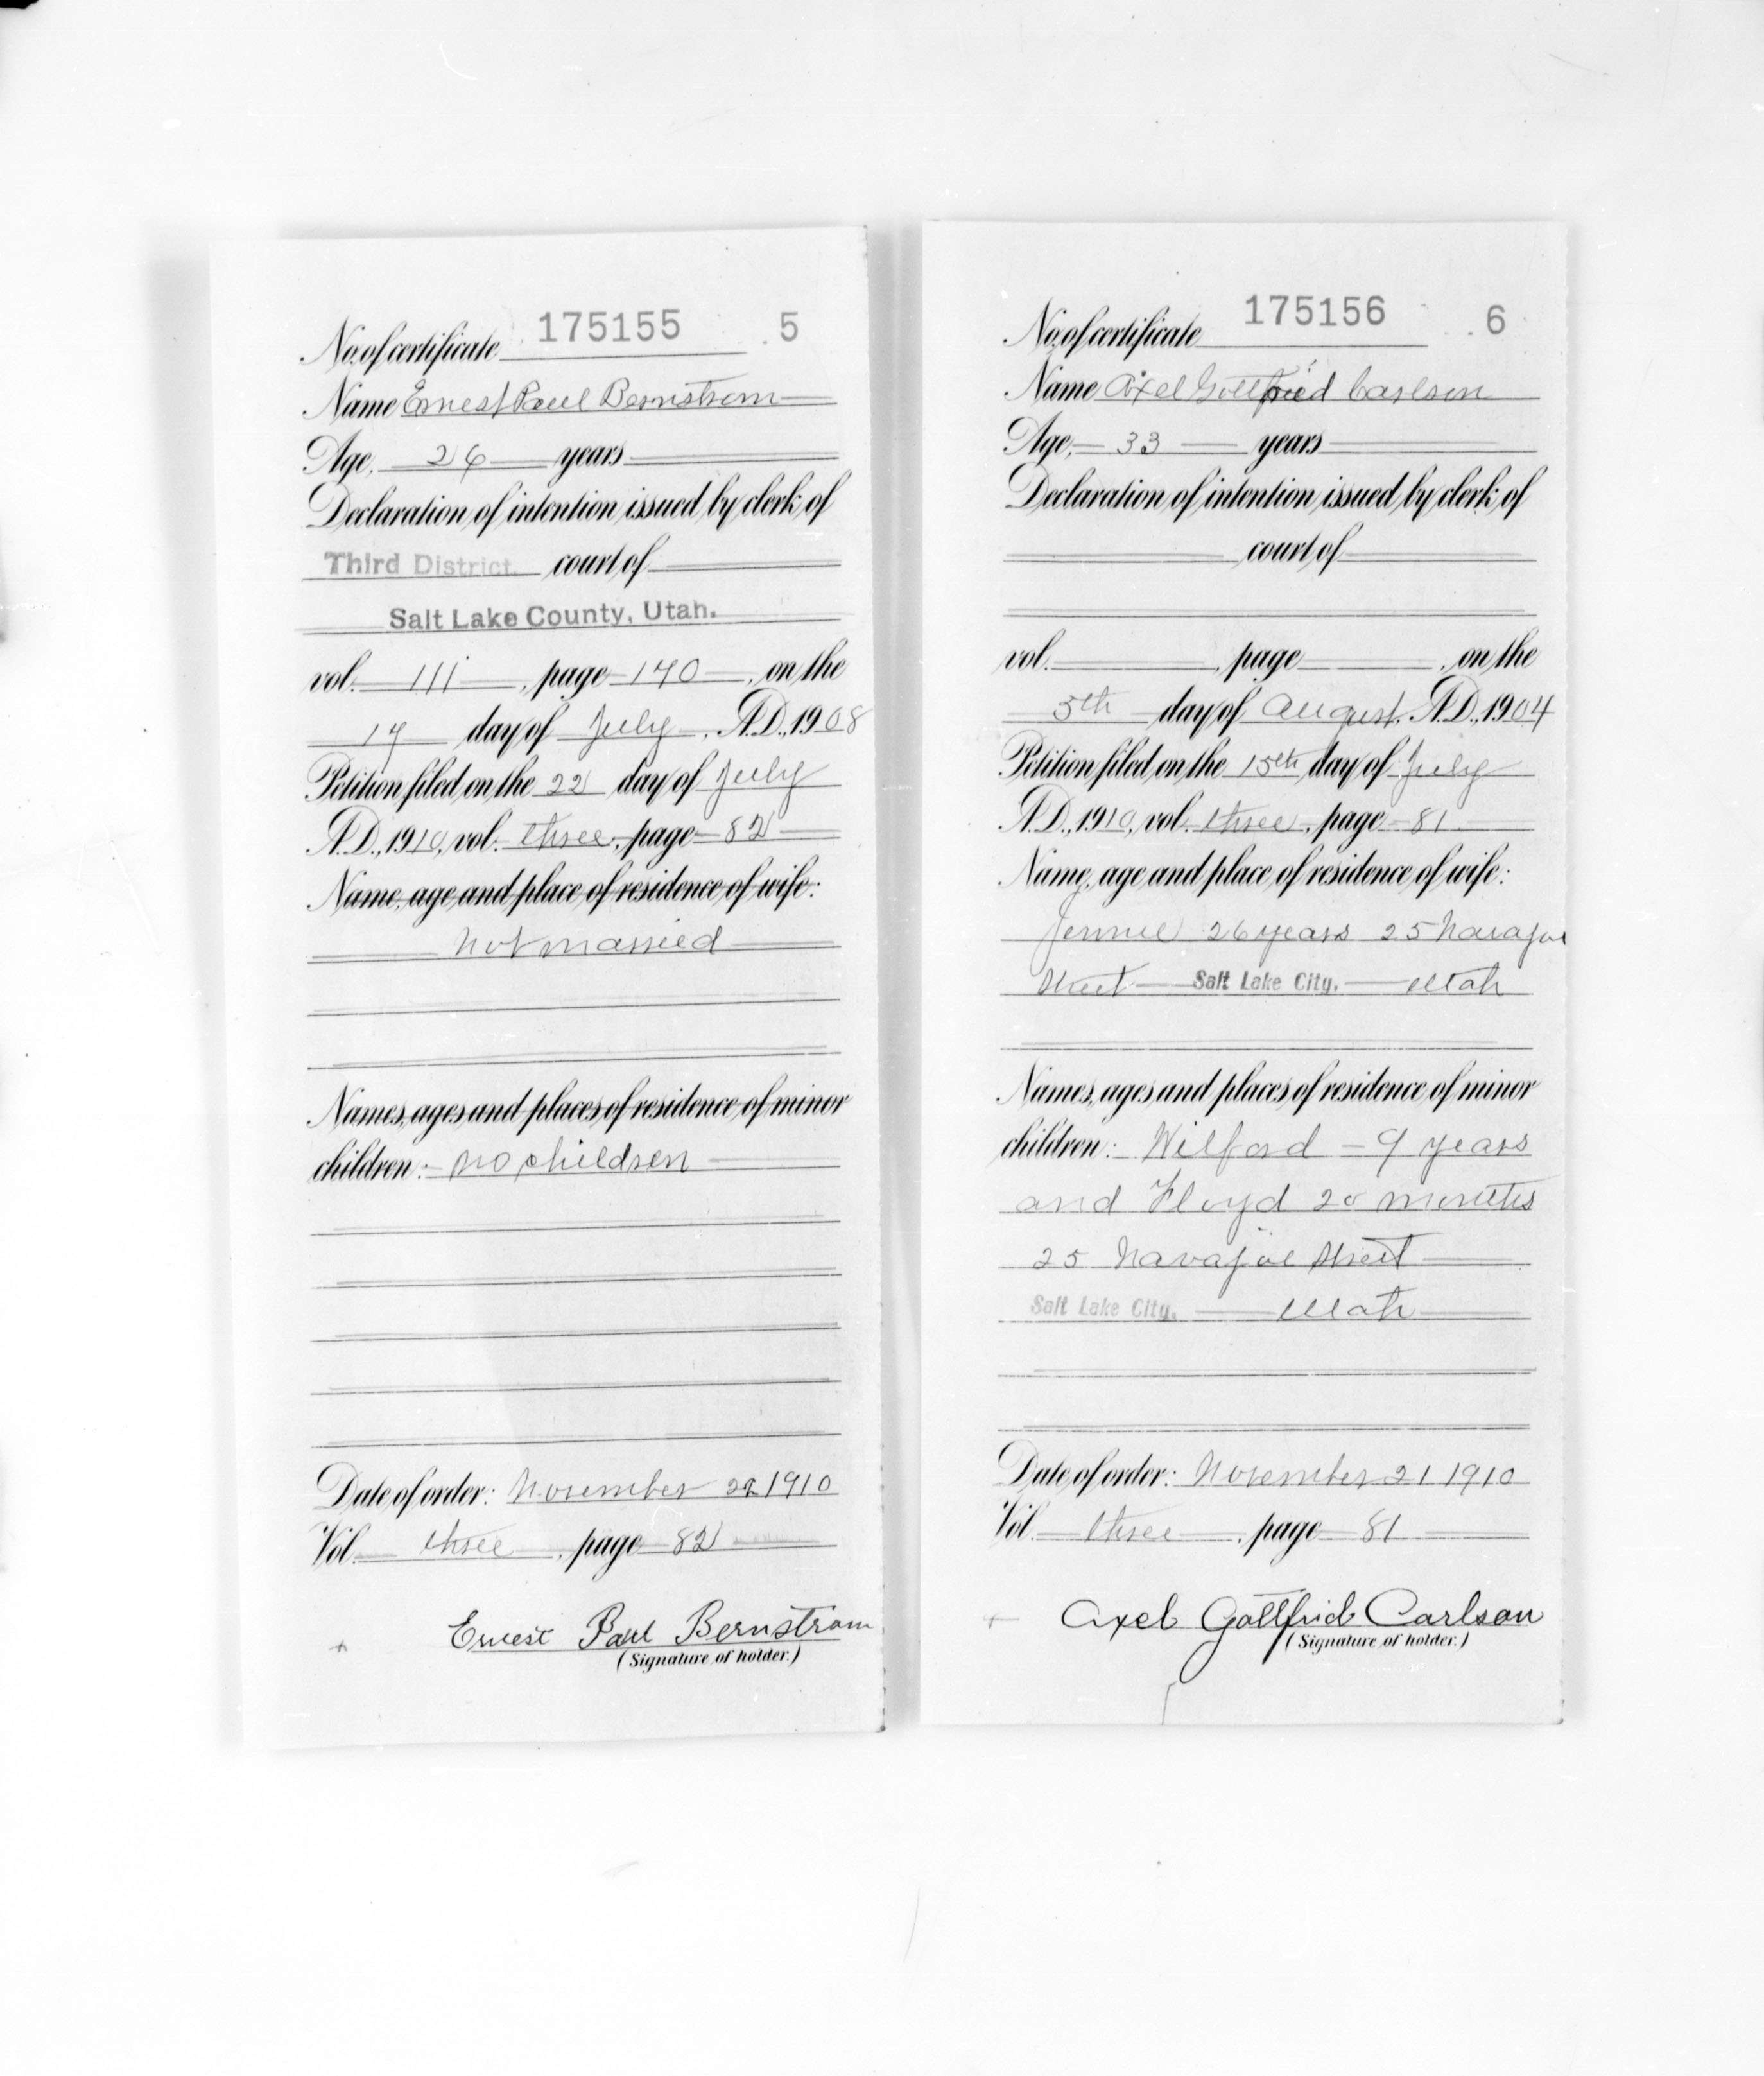 No. of certificate 175155 5
Name Ernest Paul Bernstrom
Age, 26 years
Declaration of intention issued by clerk of
Third District court of
Salt Lake County, Utah.
vol. 111, page 170, on the
17 day of July, A.D., 1908
Petition filed on the 22 day of July
A.D., 1910, vol. three, page 82
Name, age and place of residence of wife:
not married
Names, ages and places of residence of minor
children: no children
Date of order: November 22 1910
Vol. three, page 82
Ernest Paul Bernstrom
(Signature of holder.)
No. of certificate 175156 6
Name Axel Gottfried Carlson
Age, 33 years
Declaration of intention issued by clerk of
court of
vol. , page , on the
5th day of August, A.D., 1904
Petition filed on the 15th day of July
A.D., 1910, vol. three, page 81
Name, age and place of residence of wife:
Jennie 26 years 25 Navajoe
Street Salt Lake City, Utah
Names, ages and places of residence of minor
children: Wilford - 9 years
and Floyd 20 months
25 Navajoe Street
Salt Lake City, Utah
Date of order: November 21 1910
Vol. three, page 81
Axel Gottfrid Carlson
(Signature of holder.)